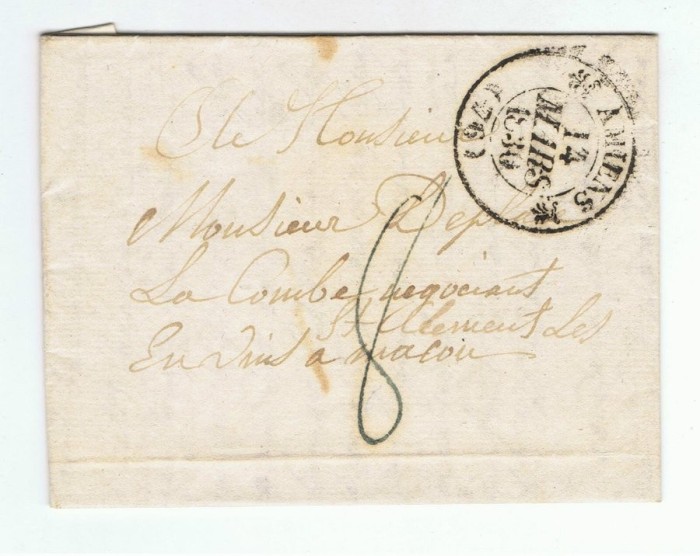 A Monsieur
Monsieur Deplace
La Combe negociant
St Clement Les
En Vins a macon
8
AMIENS
14
MARS
1830
(76)